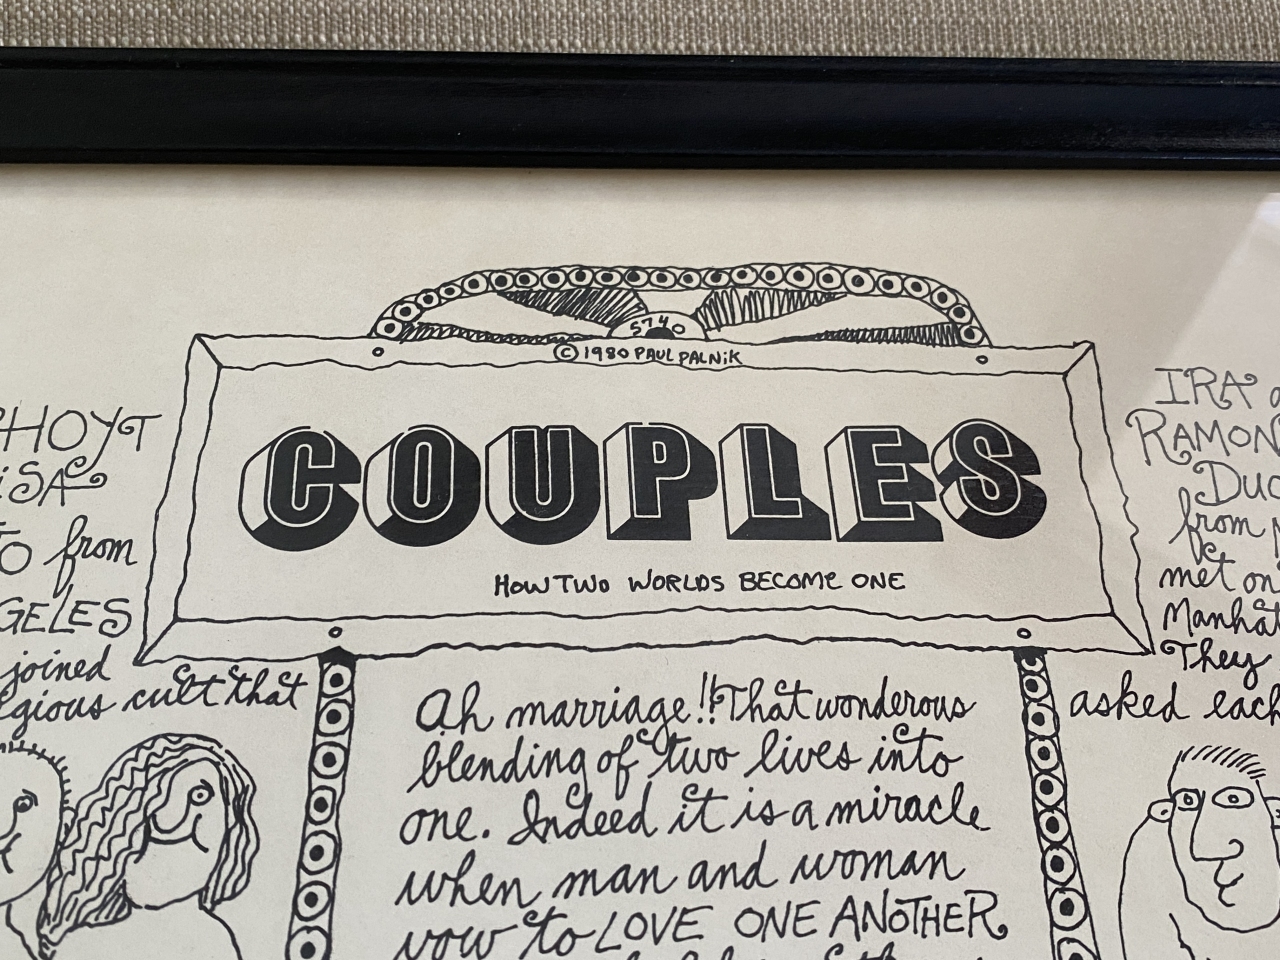 5740
© 1980 PAUL PALNiK
COUPLES
HOW TWO WORLDS BECOME ONE
HOYT
iSA
O from
GELES
joined
gious cult that
Ah marriage!! That wonderous
blending of two lives into
one. Indeed it is a miracle
when man and woman
vow to LOVE ONE ANOTHER
IRA
RAMON
DUC
from
met on
Manhat
They
asked each